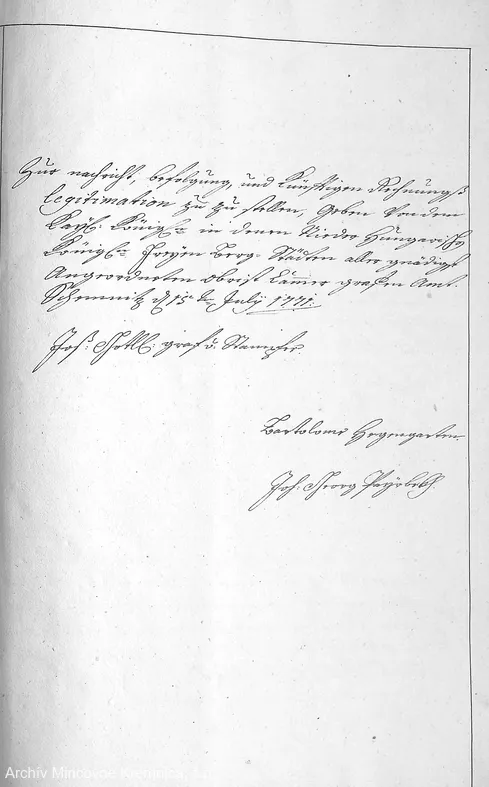 Zur nachricht, befolgung, und künftigen Rechnungs
legitimation zu zu stellen, Geben von dem
Kayl: Königl: in denen Nieder Hungarisch
Königl: Freyen Berg-Städten aller gnädigst
Angeordneten obrist Camer grafen Amt
Schemnitz d 15 July 1771.
Jos: Gottl: graf v. Stampfer
Bartolome Hegengarten
Joh: Georg
Archiv Mincovne Kremnica,